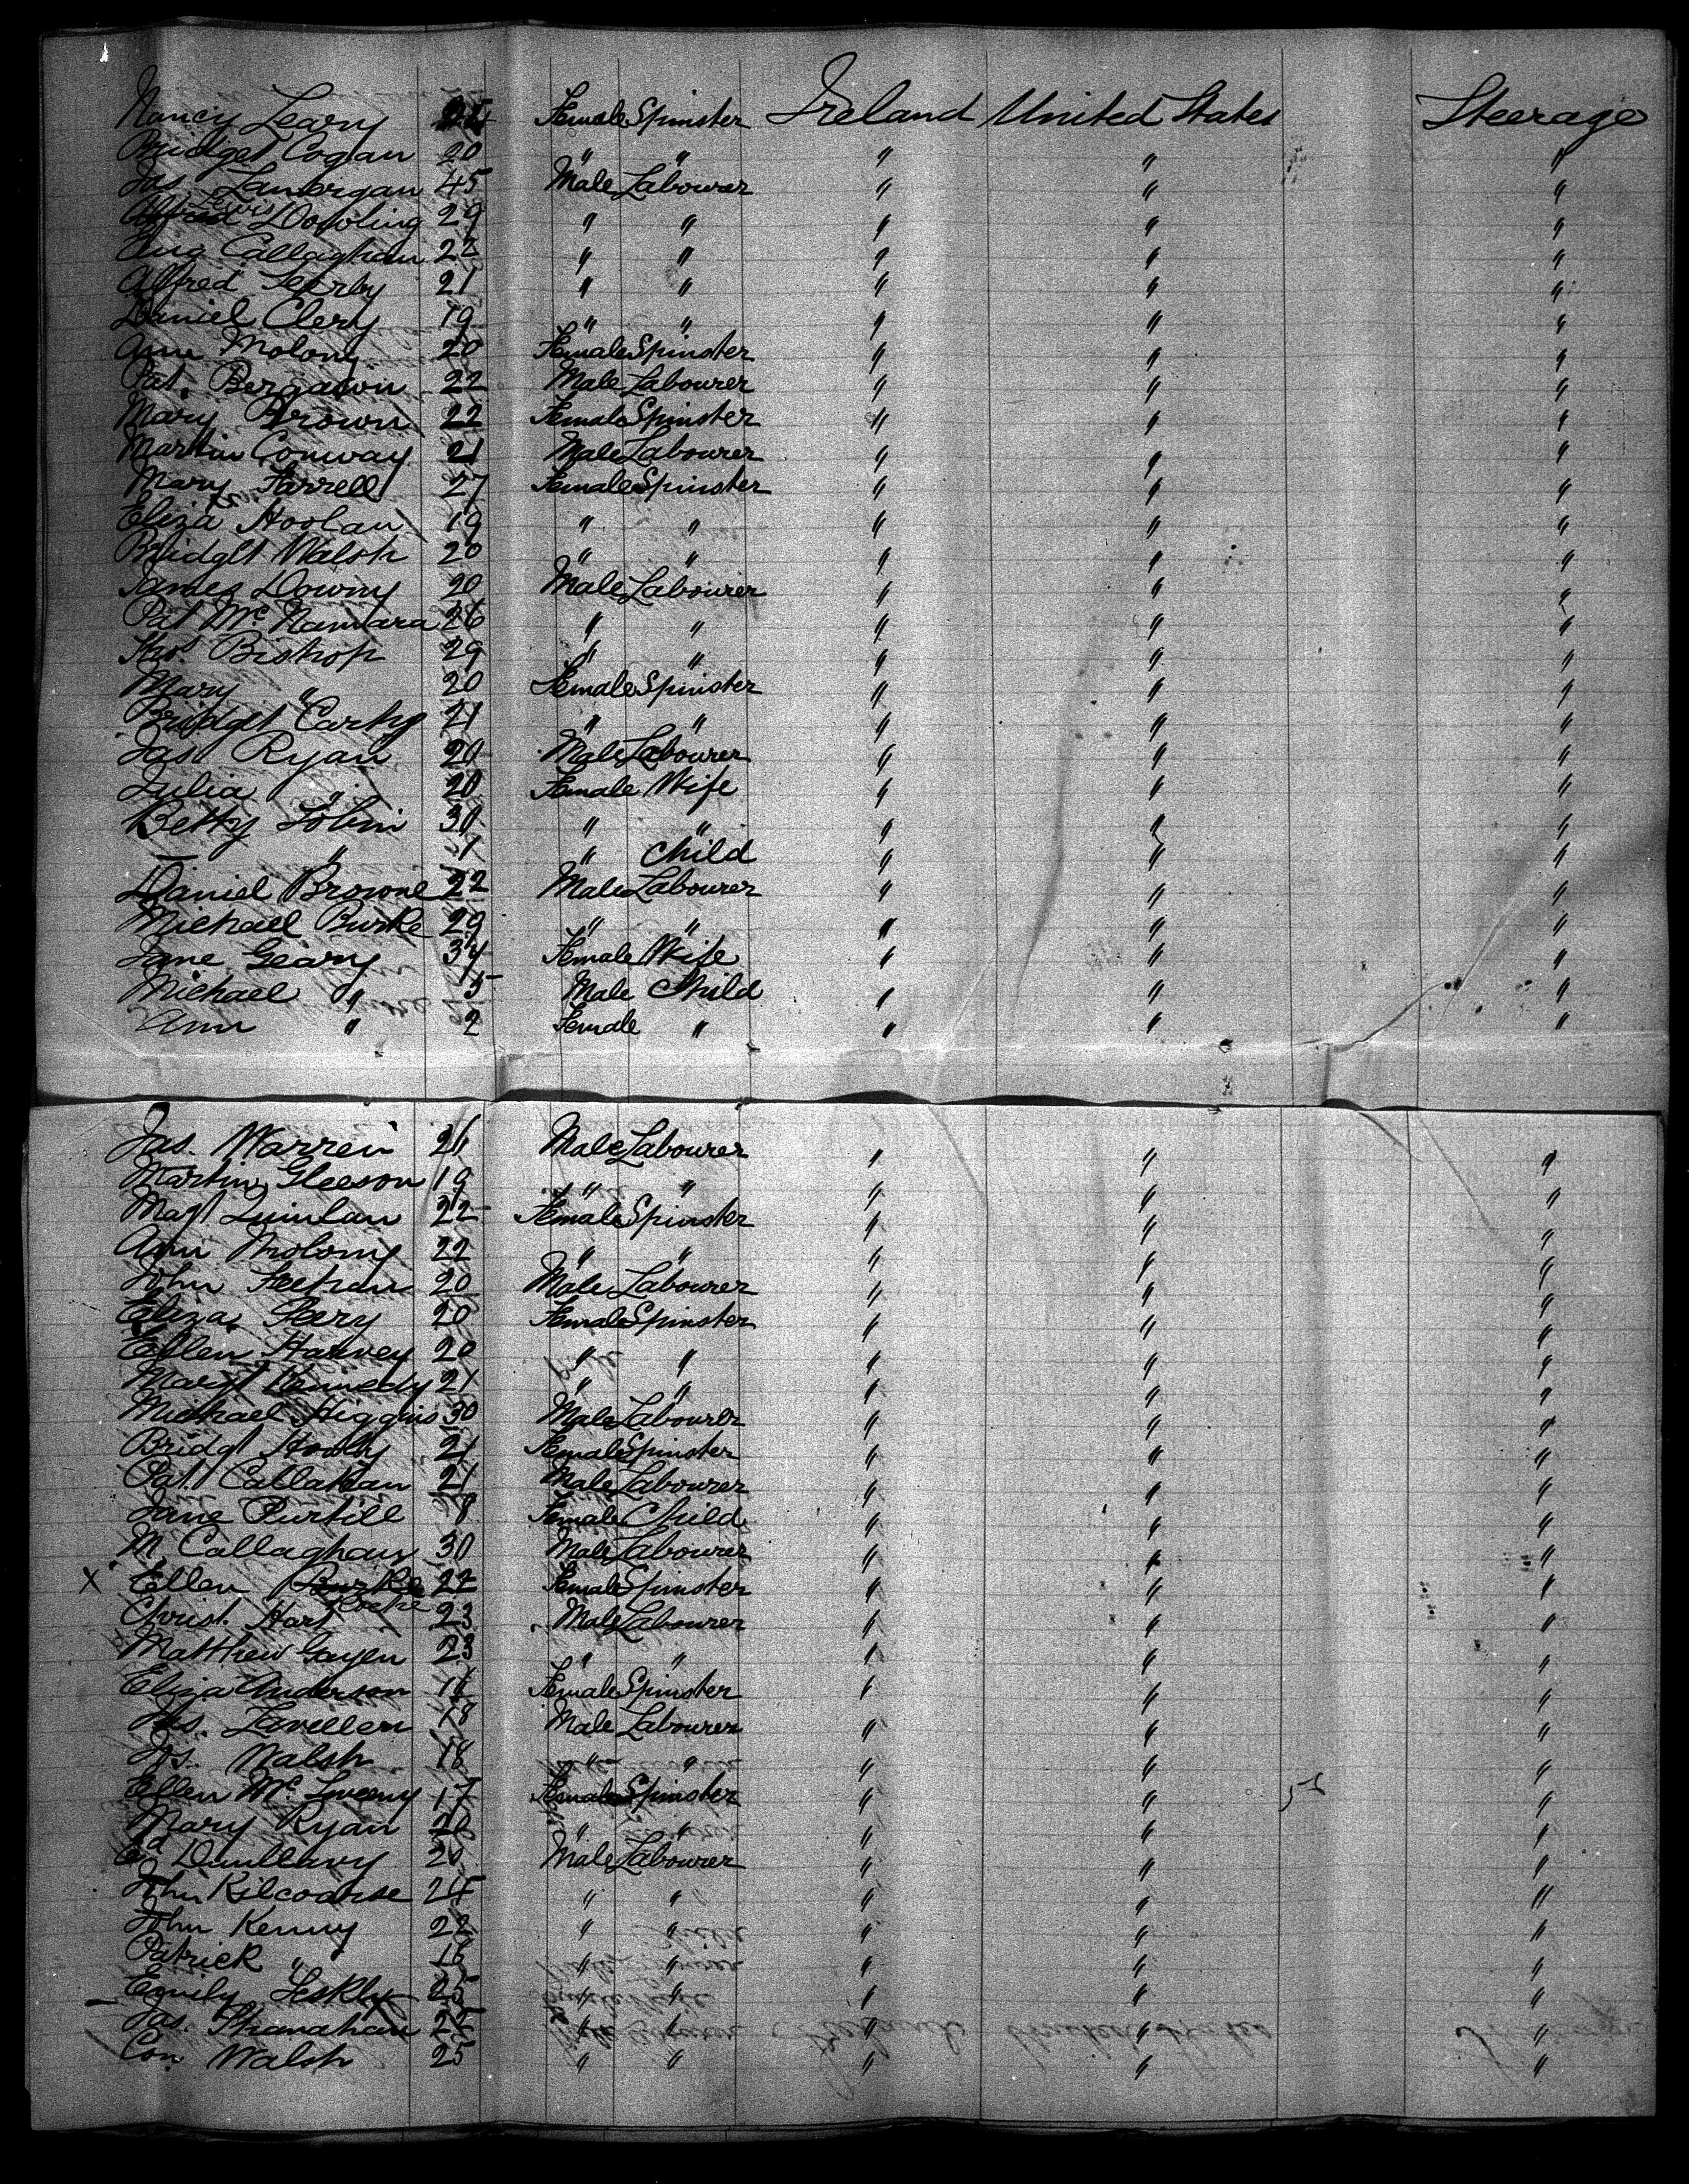 Nancy Leary Female Spinster Ireland United States Steerage
Bridget Cogan 20 " " " " "
Jas. Lanergan 45 Male Labourer " " "
Dowling 29 " " " " "
Callaghan 22 " " " " "
Alfred 21 " " " " "
Daniel Clery 19 " " " " "
Ann Molony 20 Female Spinster " " "
Pat. 22 Male Labourer " " "
Mary Brown 22 Female Spinster " " "
Martin Conway 21 Male Labourer " " "
Mary Farrell 27 Female Spinster " " "
Eliza Hoolan 19 " " " " "
Bridget Walsh 20 " " " " "
James Downy 20 Male Labourer " " "
Pat McNamara 26 " " " " "
Thos. Bishop 29 " " " " "
Mary " 20 Female Spinster " " "
Bridget Carthy 21 " " " " "
Jas Ryan 20 Male Labourer " " "
Julia " 20 Female Wife " " "
Betty Tobin 30 " " " " "
— " 1 " Child " " "
Daniel Browne 22 Male Labourer " " "
Michael Burke 29 " " " " "
Jane Geary 34 Female Wife " " "
Michael " 5 Male Child " " "
Ann " 2 Female " " " "
Jas. Warren 21 Male Labourer " " "
Martin Gleeson 19 " " " " "
Magt Quinlan 22 Female Spinster " " "
Ann Molony 22 " " " " "
John Feehan 20 Male Labourer " " "
Eliza 20 Female Spinster " " "
Ellen Harvey 20 " " " " "
Margt Kennedy 21 " " " " "
Michael Higgins 30 Male Labourer " " "
Bridgt 21 Female Spinster " " "
Pat. Callahan 21 Male Labourer " " "
Jane Purtill 8 Female Child " " "
M Callaghan 30 Male Labourer " " "
X Ellen Burke 22 Female Spinster " " "
Roche
Christ. Hart 23 Male Labourer " " "
Matthew 23 " " " " "
Eliza Anderson Female Spinster " " "
Lavellen 18 Male Labourer " " "
Walsh 18 " " " " "
Ellen 17 Female Spinster " " "
Mary Ryan 20 " " " " "
Ed Dunleavy 20 Male Labourer " " "
John Kilcoarse " " " " "
John Kenny 22 " " " " "
Patrick " " " " " "
Emily 25 " " " " "
Jas. Shanahan " " " " "
Con Walsh 25 " " " " "